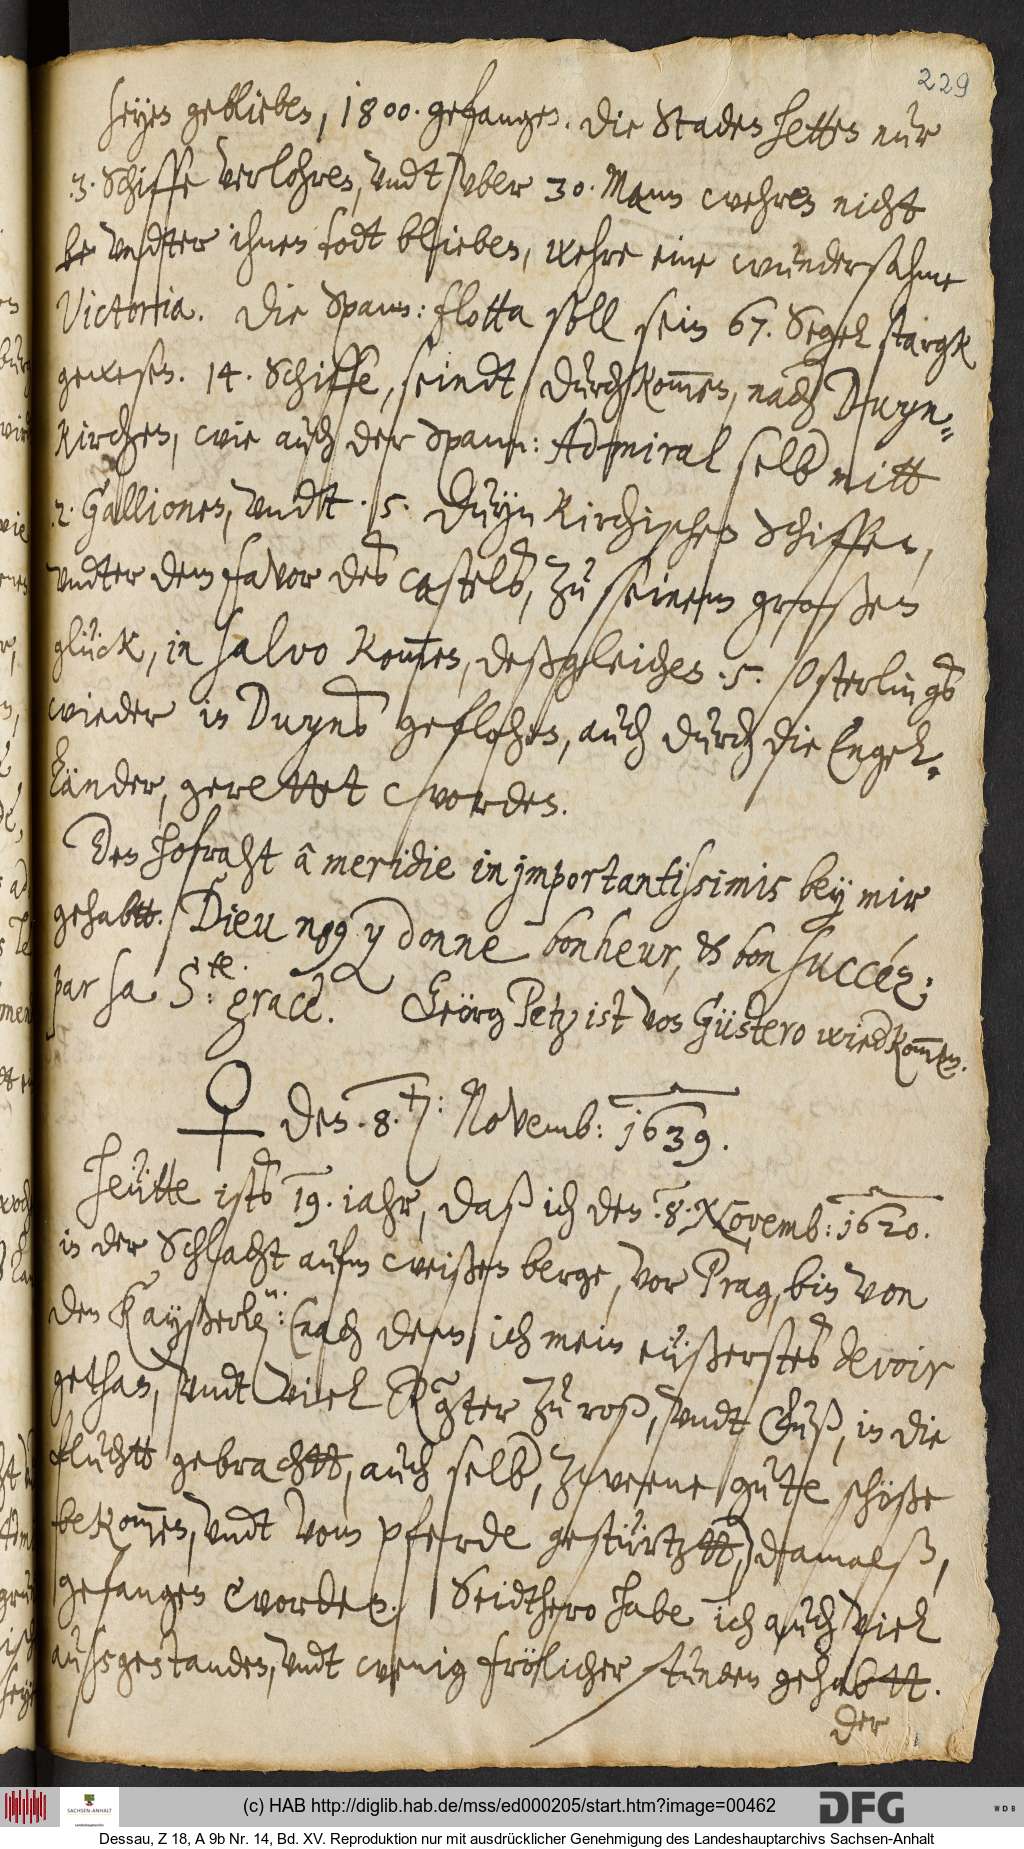 229
seyen geblieben, 1800. gefangen. Die Staden hetten nur
.3. Schiffe verlohren, vndt vber 30. Mann wehren nicht
be vndter ihnen todt blieben, wehre eine wundersahme
Victoria. Die Spann: flotta soll sein 67. Segel stargk
gewesen. 14. Schiffe, seindt durchkom̅en, nach Duyn„
kirchen, wie auch der Spann: Admiral selb mitt
.2. Gallionen, vndt .5. Duynkirchischen Schiffen,
vndter dem favor des castels, zu seinem großen
glück, in salvo kom̅en, deßgleichen .5. Osterlings
wieder in Duyns geflohen, auch durch die Engel„
länder, gerettet worden.
Den hofraht â meridie in jmportantissimis bey mir
gehabtt. Dieu n9 y donne bonheur, & bon succéz;
par sa S:te. grace. Geörg Petz ist von Güstero wiedkom̅en.
♀ den .8. t[en]: Novemb: 1639.
Heütte ists 19. iahr, daß ich den .8. Novemb: 1620.
in der Schlacht aufm weißen berge, vor Prag, bin von
den Kayßerl[n]: (nach dem ich mein eüßerstes devoir
gethan, vndt viel Reüter zu roß, vndt Fuß, in die
fluchtt gebrachtt, auch selb, zweene gute schöße
bekom̅en, vndt vom pferde gestürtztt,) damalß,
gefangen worden. Seidthero habe ich auch viel
außgestanden, vndt wenig frölicher stunden gehabtt.
der
(c) HAB http://diglib.hab.de/mss/ed000205/start.htm?image=00462
SACHSEN-ANHALT
DFG
WDB
Dessau, Z 18, A 9b Nr. 14, Bd. XV. Reproduktion nur mit ausdrücklicher Genehmigung des Landeshauptarchivs Sachsen-Anhalt